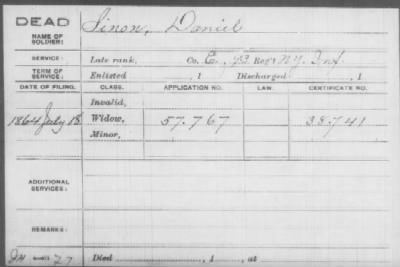 DEAD
NAME OF SOLDIER: Sinon, Daniel
SERVICE: Late rank, Co. E, 93 Reg't N.Y. Inf
TERM OF SERVICE: Enlisted , 1 Discharged , 1
DATE OF FILING. CLASS. APPLICATION NO. LAW. CERTIFICATE NO.
Invalid,
1864 July 18 Widow, 57.767 38741
Minor,
ADDITIONAL SERVICES:
REMARKS:
Died , 1 , at